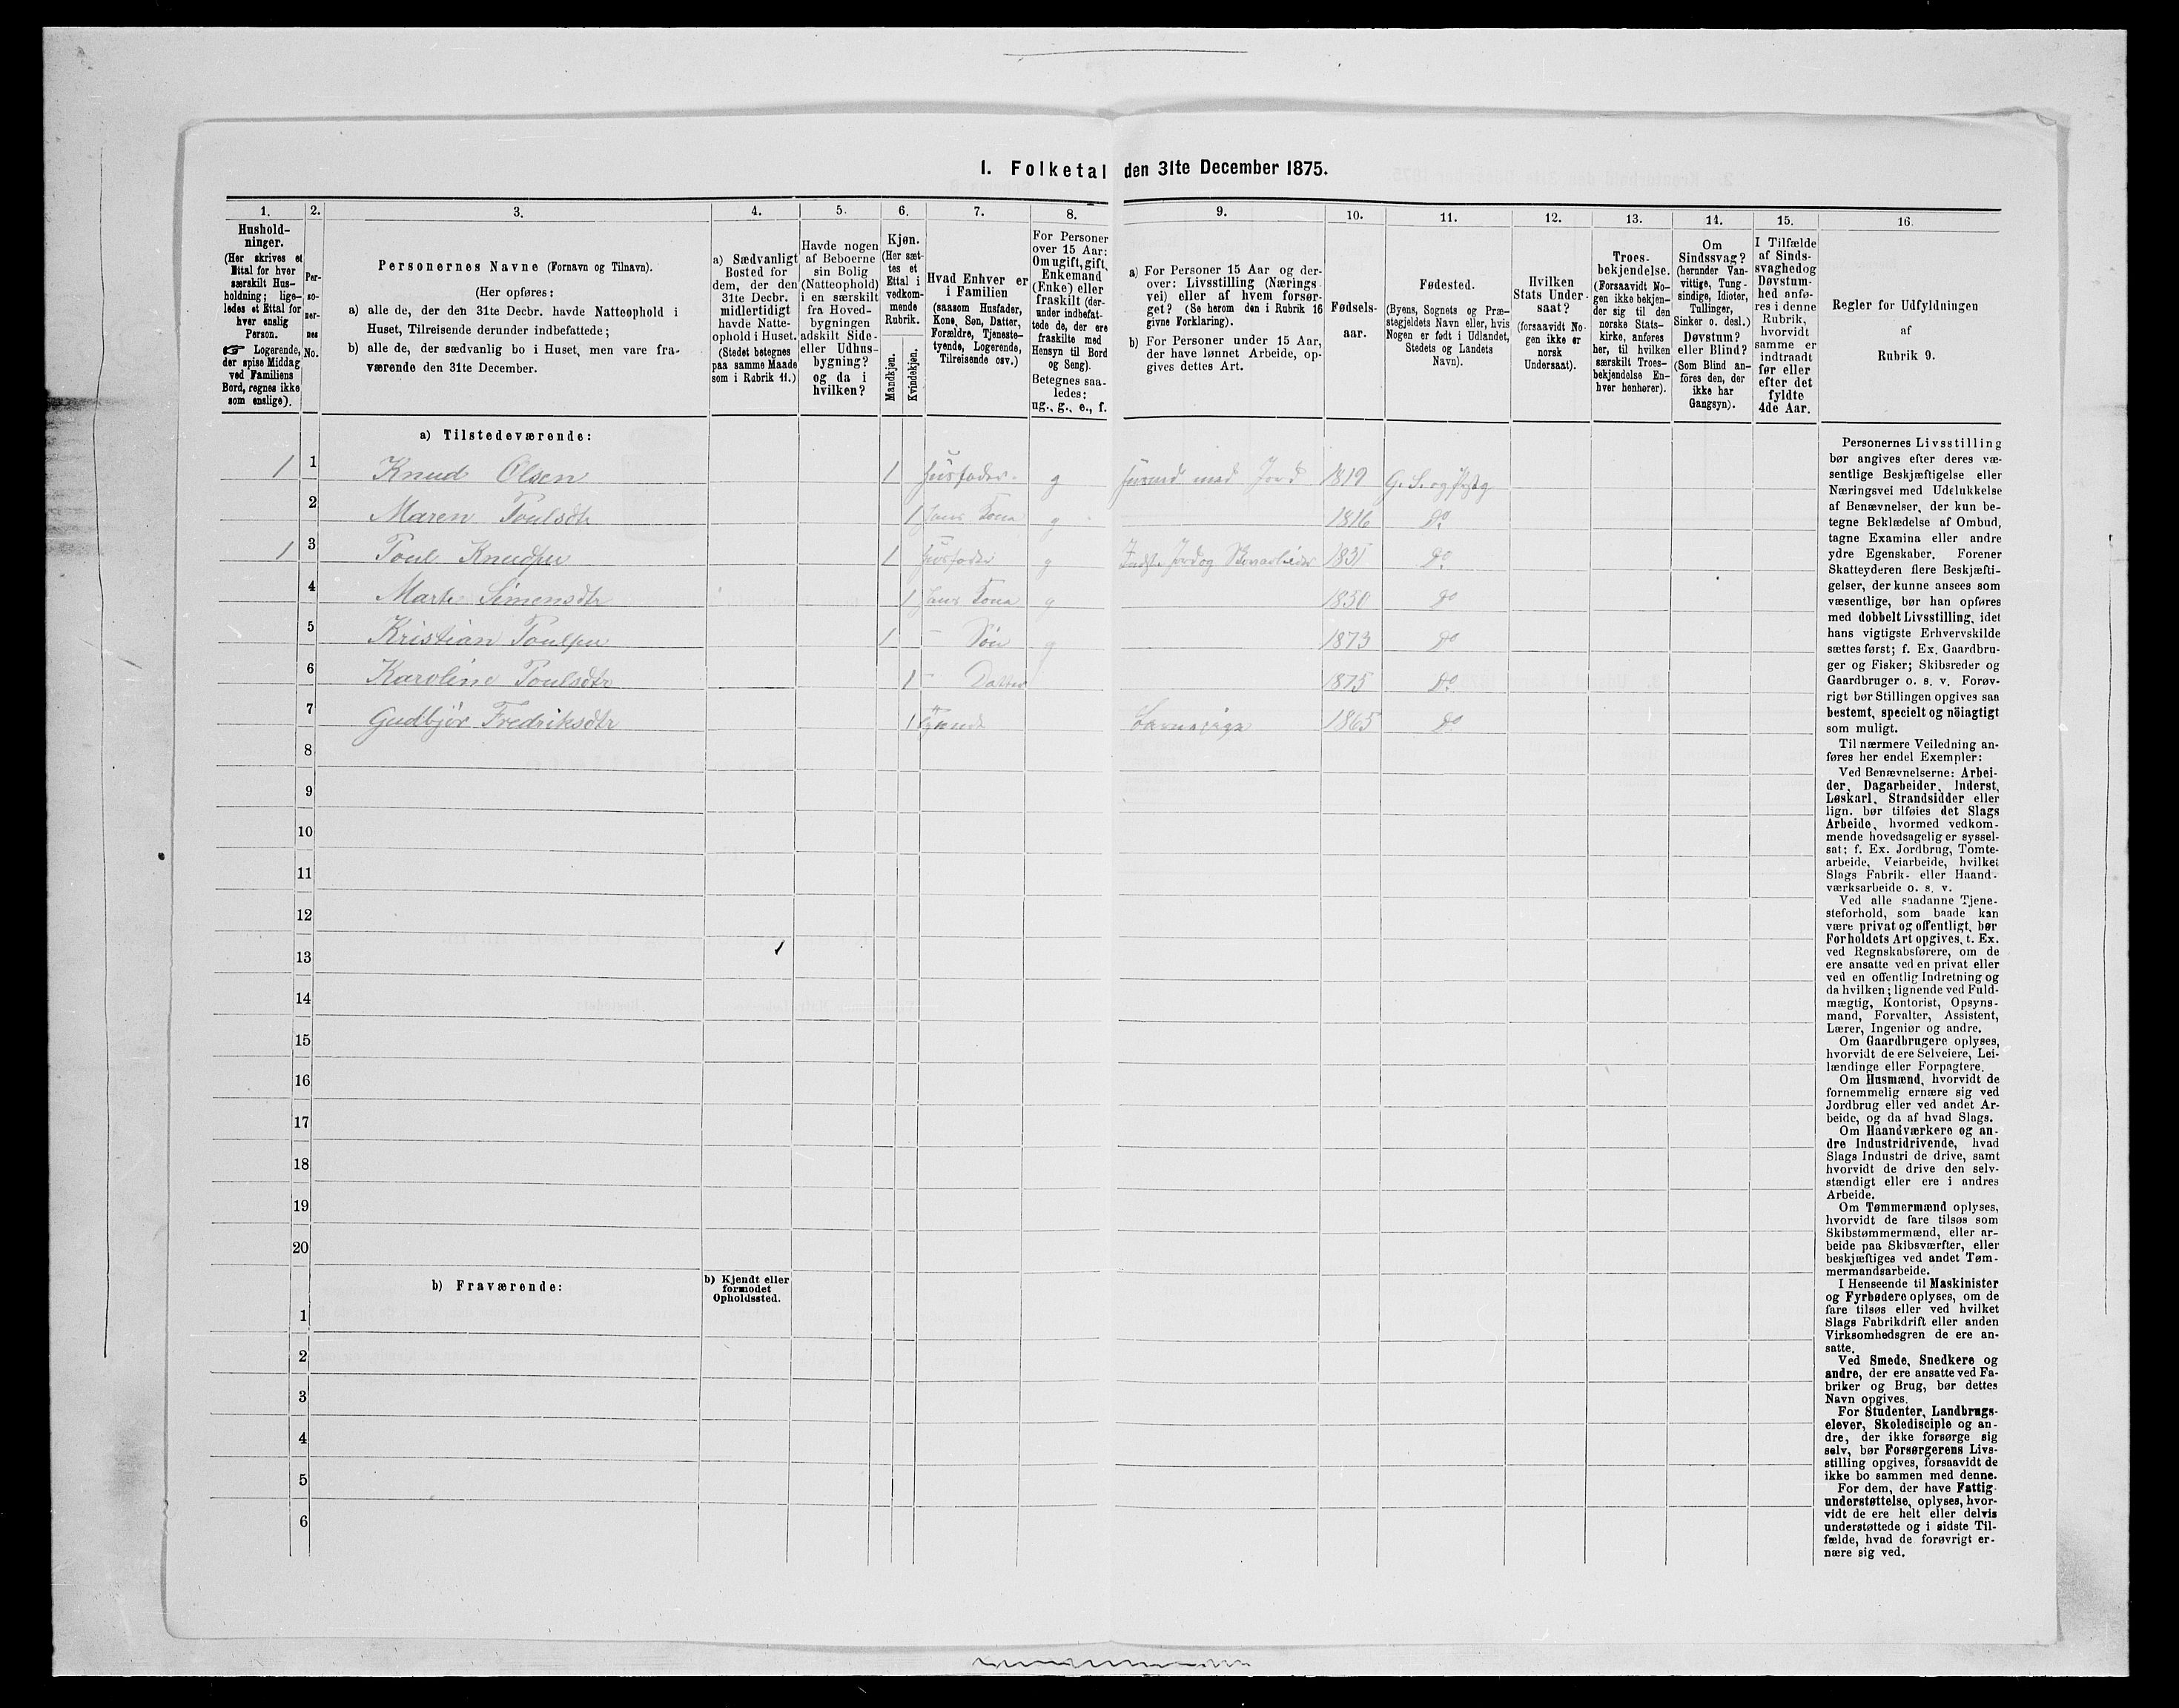 I. Folketal den 31te December 1875.
1. 2. 3. 4. 5. 6. 7. 8. 9. 10. 11. 12. 13. 14. 15. 16.
Hushold-
ninger.
(Her skrives et
Ettal for hver
særskilt Hus-
holdning; lige-
ledes et Ettal for
hver enslig
Person.
☞ Logerende,
der spise Middag
ved Familiens
Bord, regnes ikke
som enslige).
Per-
so-
ner-
nes
No.
Personernes Navne (Fornavn og Tilnavn).
(Her opføres:
a) alle de, der den 31te Decbr. havde Natteophold i
Huset, Tilreisende derunder indbefattede;
b) alle de, der sædvanlig bo i Huset, men vare fra-
værende den 31te December.
a) Sædvanligt
Bosted for
dem, der den
31te Decbr.
midlertidigt
havde Natte-
ophold i Huset.
(Stedet betegnes
paa samme Maade
som i Rubrik 11.)
Havde nogen
af Beboerne
sin Bolig
(Natteophold)
i en særskilt
fra Hoved-
bygningen
adskilt Side-
eller Udhus-
bygning?
og da i
hvilken?
Kjøn.
(Her sæt-
tes et
Ettal i
vedkom-
mende
Rubrik.
Mandkjøn.
Kvindekjøn.
Hvad Enhver er
i Familien
(saasom Husfader,
Kone, Søn, Datter,
Forældre, Tjeneste-
tyende, Logerende,
Tilreisende osv.)
For Personer
over 15 Aar:
Om ugift, gift,
Enkemand
(Enke) eller
fraskilt (der-
under indbefat-
tede de, der ere
fraskilte med
Hensyn til Bord
og Seng).
Betegnes saa-
ledes:
ug., g., e., f.
a) For Personer 15 Aar og der-
over: Livsstilling (Nærings-
vei) eller af hvem forsør-
get? (Se herom den i Rubrik 16
givne Forklaring).
b) For Personer under 15 Aar,
der have lønnet Arbeide, op-
gives dettes Art.
Fødsels-
aar.
Fødested.
(Byens, Sognets og Præ-
stegjeldets Navn eller, hvis
Nogen er født i Udlandet,
Stedets og Landets
Navn).
Hvilken
Stats Under-
saat?
(forsaavidt No-
gen ikke er
norsk
Undersaat).
Troes-
bekjendelse.
(Forsaavidt No-
gen ikke bekjen-
der sig til den
norske Stats-
kirke, anføres
her, til hvilken
særskilt Troes-
bekjendelse En-
hver henhører).
Om
Sindssvag?
(herunder Van-
vittige, Tung-
sindige, Idioter,
Tullinger,
Sinker o. desl.)
Døvstum?
eller Blind?
(Som Blind an-
føres den, der
ikke har
Gangsyn).
I Tilfælde
af Sinds-
svaghedog
Døvstum-
hed anfø-
res i denne
Rubrik,
hvorvidt
samme er
indtraadt
før eller
efter det
fyldte
4de Aar.
Regler for Udfyldningen
af
Rubrik 9.
a) Tilstedeværende:
1 1 Knud Olsen 1 Husfader g Husmd med Jord 1819 G. S. og Prstg
2 Maren Poulsdtr 1 hans Kona g 1816 Do
1 3 Poul Knudsen 1 Husfader g 1851 Do
4 Marte Simensdtr 1 hans Kona g 1850 Do
5 Kristian Poulsen 1 – Søn g 1873 Do
6 Karoline Poulsdtr 1 – Datter 1875 Do
7 Gudbjør Fredriksdtr 1 1865 Do
8
9
10
11
12
13
14
15
16
17
18
19
20
b) Fraværende:
b) Kjendt eller
formodet
Opholdssted.
1
2
3
4
5
6
Personernes Livsstilling
bør angives efter deres væ-
sentlige Beskjæftigelse eller
Næringsvei med Udelukkelse
af Benævnelser, der kun be-
tegne Beklædelse af Ombud,
tagne Examina eller andre
ydre Egenskaber. Forener
Skatteyderen flere Beskjæfti-
gelser, der kunne ansees som
væsentlige, bør han opføres
med dobbelt Livsstilling, idet
hans vigtigste Erhvervskilde
sættes først; f. Ex. Gaardbru-
ger og Fisker; Skibsreder og
Gaardbruger o. s. v. Forøv-
rigt bør Stillingen opgives saa
bestemt, specielt og nöiagtigt
som muligt.
Til nærmere Veiledning an-
føres her endel Exempler:
Ved Benævnelserne: Arbei-
der, Dagarbeider, Inderst,
Løskarl, Strandsidder eller
lign. bør tilføies det Slags
Arbeide, hvormed vedkom-
mende hovedsagelig er syssel-
sat; f. Ex. Jordbrug, Tomte-
arbeide, Veiarbeide, hvilket
Slags Fabrik- eller Haand-
værksarbeide o. s. v.
Ved alle saadanne Tjene-
steforhold, som baade kan
være privat og offentligt, bør
Forholdets Art opgives, t. Ex.
ved Regnskabsførere, om de
ere ansatte ved en privat eller
ved en offentlig Indretning og
da hvilken; lignende ved Fuld-
mægtig, Kontorist, Opsyns-
mand, Forvalter, Assistent,
Lærer, Ingeniør og andre.
Om Gaardbrugere oplyses,
hvorvidt de ere Selveiere, Lei-
lændinge eller Forpagtere.
Om Husmænd, hvorvidt de
fornemmelig ernære sig ved
Jordbrug eller ved andet Ar-
beide, og da af hvad Slags.
Om Haandværkere og an-
dre Industridrivende, hvad
Slags Industri de drive, samt
hvorvidt de drive den selv-
stændigt eller ere i andres
Arbeide.
Om Tømmermænd oplyses,
hvorvidt de fare tilsøs som
Skibstømmermænd, eller ar-
beide paa Skibsværfter, eller
beskjæftiges ved andet Tøm-
mermandsarbeide.
I Henseende til Maskinister
og Fyrbødere oplyses, om de
fare tilsøs eller ved hvilket
Slags Fabrikdrift eller anden
Virksomhedsgren de ere an-
satte.
Ved Smede, Snedkere og
andre, der ere ansatte ved Fa-
briker og Brug, bør dettes
Navn opgives.
For Studenter, Landbrugs-
elever, Skoledisciple og an-
dre, der ikke forsørge sig
selv, bør Forsørgerens Livs-
stilling opgives, forsaavidt de
ikke bo sammen med denne.
For dem, der have Fattig-
understøttelse, oplyses, hvor-
vidt de ere helt eller delvis
understøttede og i sidste Til-
fælde, hvad de forøvrigt er-
nære sig ved.